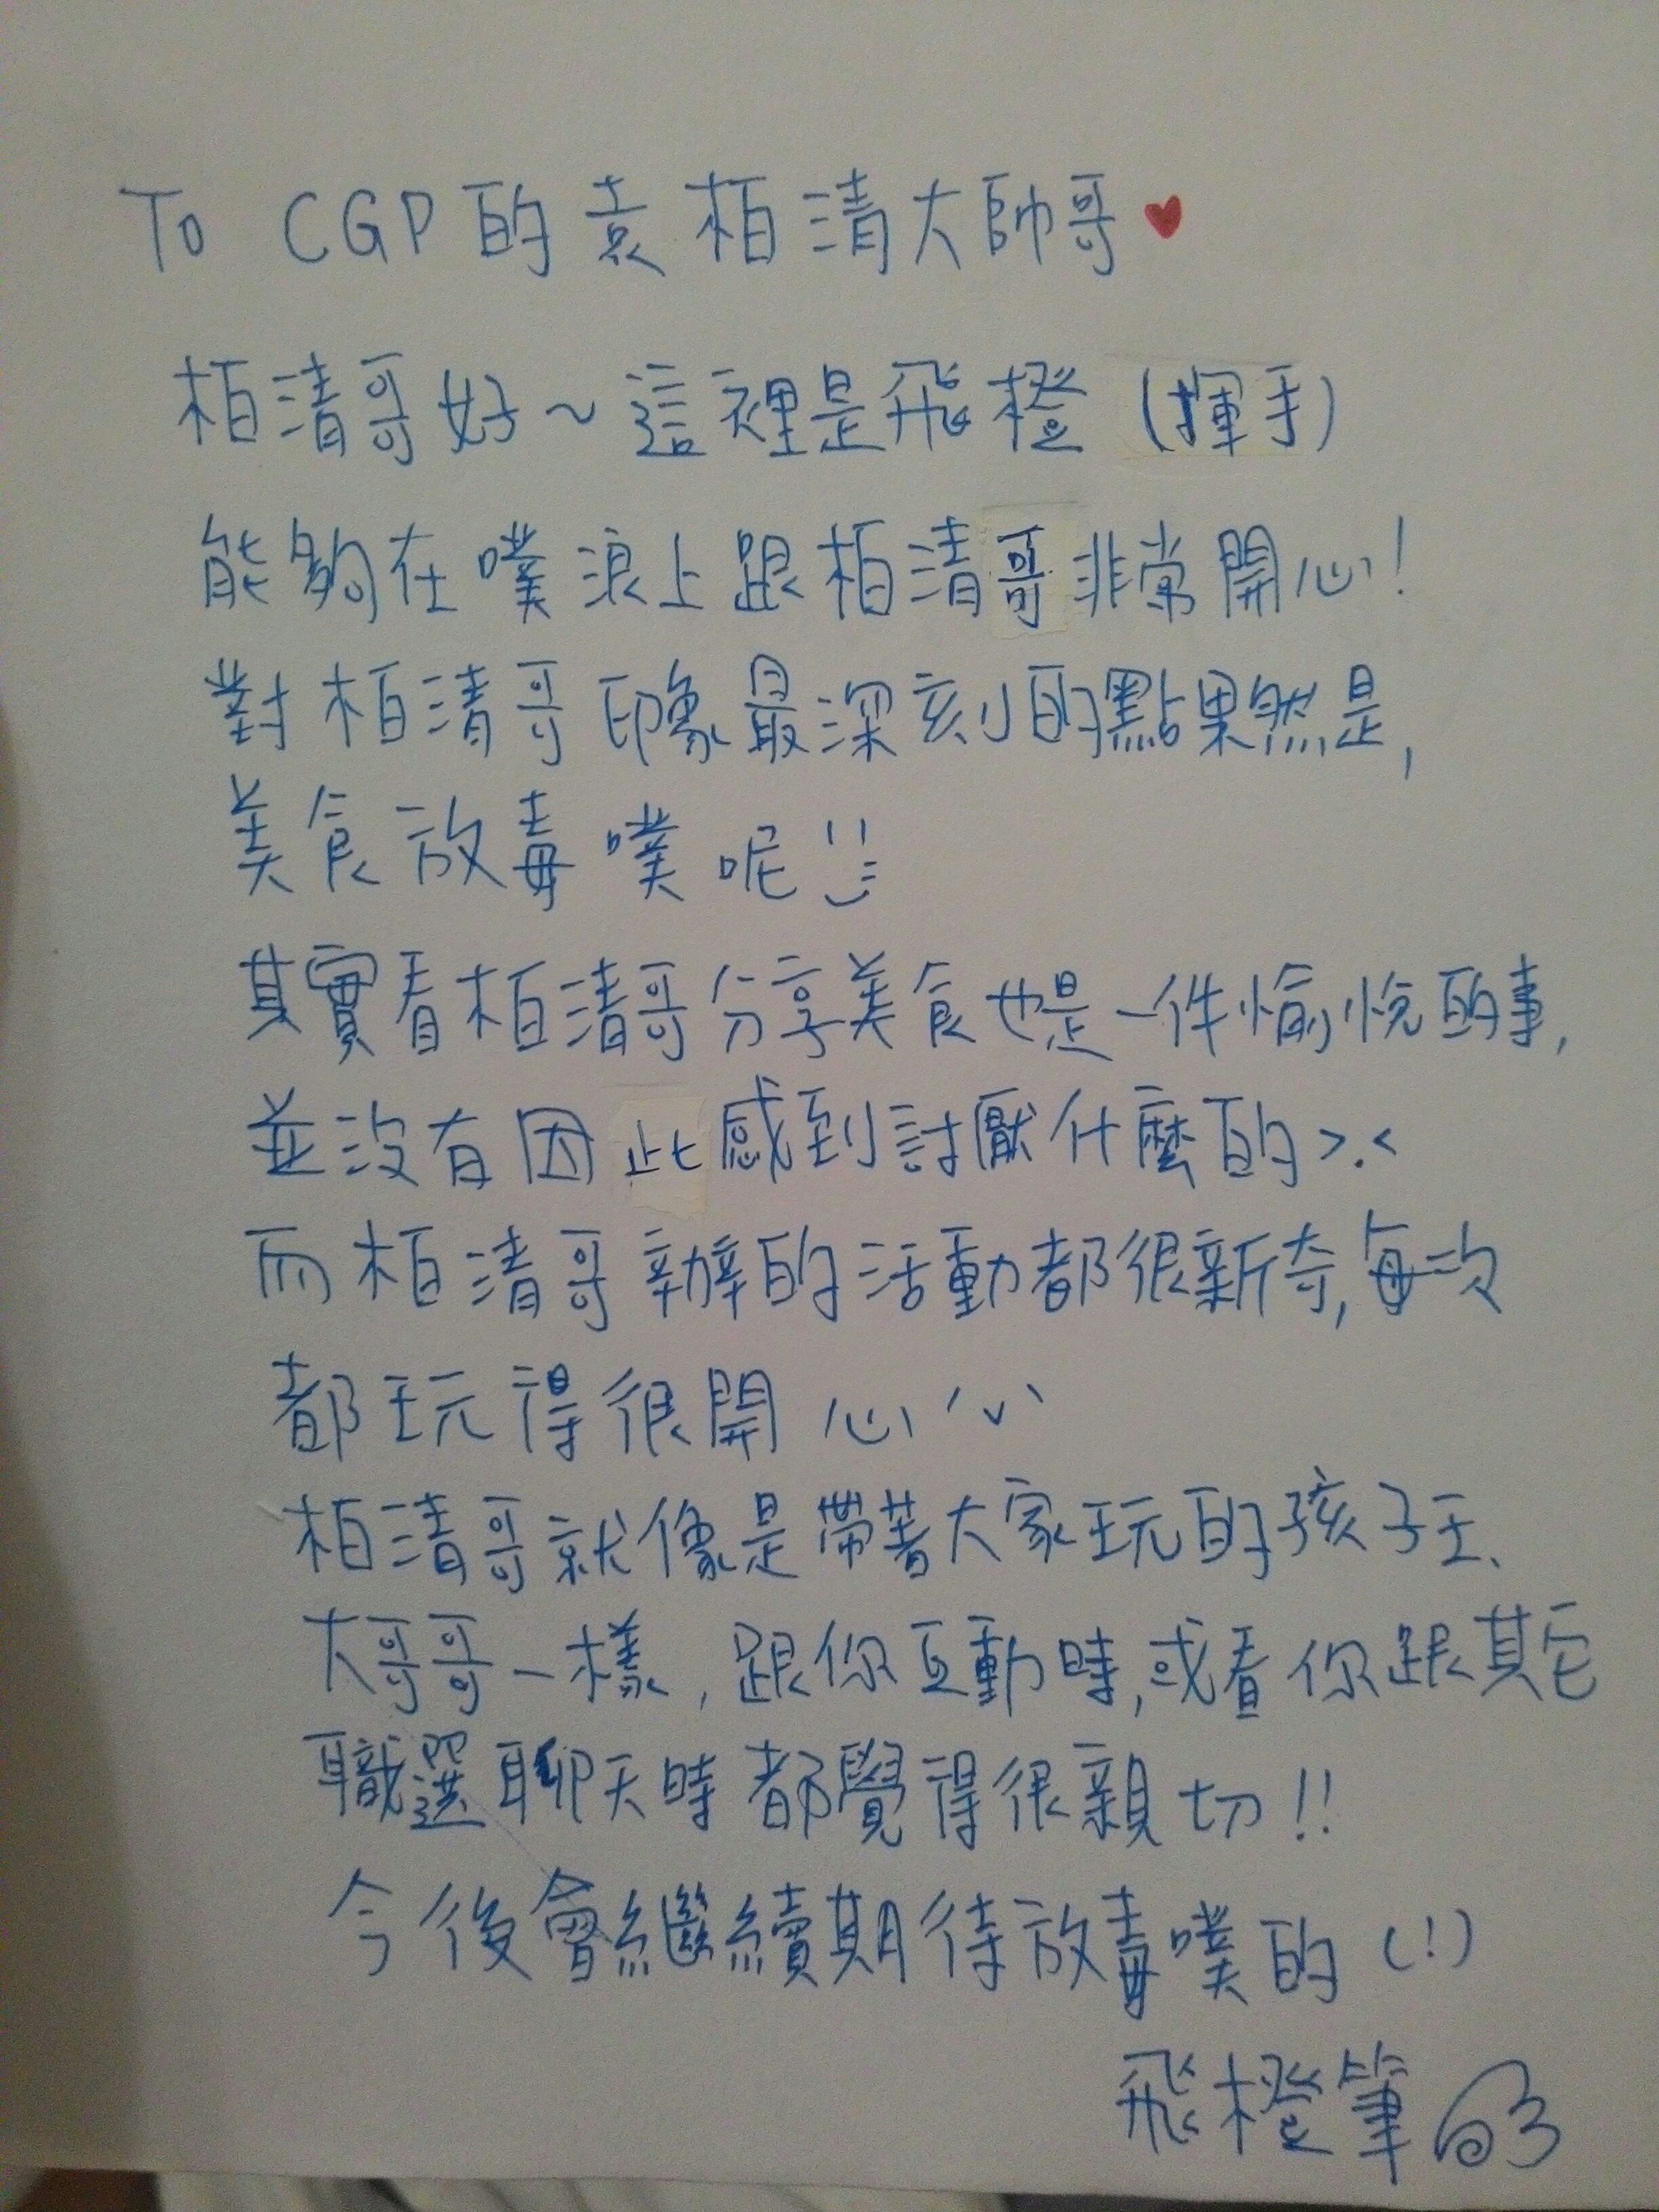 To CGP的袁柏清大帥哥♥
柏清哥好~這裡是飛橙(揮手)
能夠在噗浪上跟柏清哥非常開心!
對柏清哥印象最深刻的點果然是,
美食放毒噗呢!!
其實看柏清哥分享美食也是一件愉悅的事,
並沒有因此感到討厭什麼的>.<
而柏清哥辦的活動都很新奇,每次
都玩得很開心'v'
柏清哥就像是帶著大家玩的孩子王、
大哥哥一樣,跟你互動時,或看你跟其它
職選聊天時都覺得很親切!!
今後會繼續期待放毒噗的(!)
飛橙筆